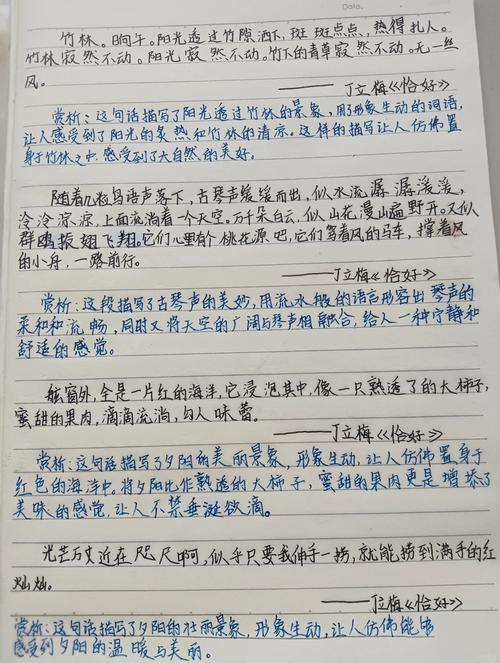 Date.
竹林。日向午。阳光透过竹隙洒下,斑斑点点,热得扎人。
竹林寂然不动。阳光寂然不动。竹下的青草寂然不动。无一丝
风。
——丁立梅《恰好》
赏析:这句话描写了阳光透过竹林的景象,用了形象生动的词语,
让人感受到了阳光的炙热和竹林的清凉。这样的描写让人仿佛置
身于竹林之中,感受到了大自然的美好。
随着几粒鸟语声落下,古琴声缓缓而出,似水流潺潺湲湲,
泠泠淙淙,上面流淌着一个天空。万千朵白云,似山花漫山遍野开。又似
群鸥振翅飞翔。它们心里有个桃花源吧,它们驾着风的马车,撑着风
的小舟,一路前行。
——丁立梅《恰好》
赏析:这段描写了古琴声的美妙,用流水般的语言形容出琴声的
柔和和流畅,同时又将天空的广阔与琴声相融合,给人一种宁静和
舒适的感觉。
舷窗外,全是一片红的海洋,它浸泡其中,像一只熟透了的大柿子,
蜜甜的果肉,滴滴流淌,勾人味蕾。
——丁立梅《恰好》
赏析:这句话描写了夕阳的美丽景象,形象生动,让人仿佛置身于
红色的海洋中。将夕阳比作熟透的大柿子,蜜甜的果肉更是增添了
美味的感觉,让人不禁垂涎欲滴。
光芒万丈近在咫尺啊,似乎只要我伸手一捞,就能捞到满手的红
灿灿。
——丁立梅《恰好》
赏析:这句话描写了夕阳的壮丽景象,形象生动,让人仿佛能够
感受到夕阳的温暖与美丽。